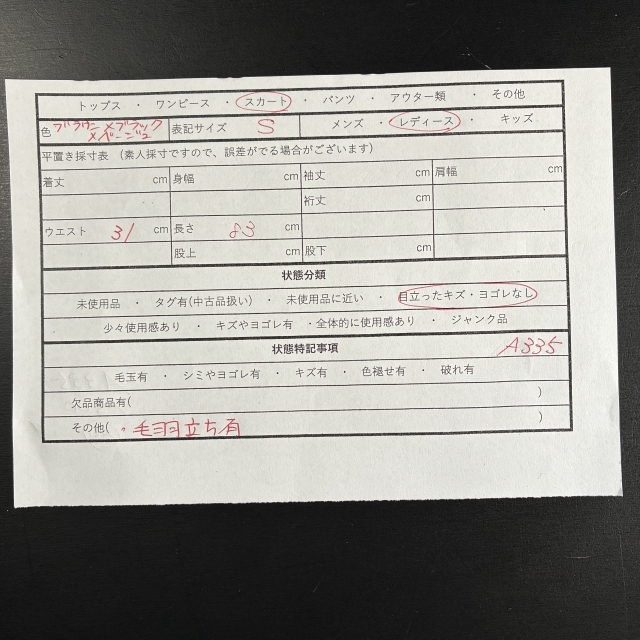 トップス ・ ワンピース ・ スカート ・ パンツ ・ アウター類 ・ その他
色 ブラウン×ブラック×ベージュ 表記サイズ S メンズ ・ レディース ・ キッズ
平置き採寸表 (素人採寸ですので、誤差がでる場合がございます)
着丈 cm 身幅 cm 袖丈 cm 肩幅 cm
裄丈 cm
ウエスト 31 cm 長さ 83 cm
股上 cm 股下 cm
状態分類
未使用品 ・ タグ有(中古品扱い) ・ 未使用品に近い ・ 目立ったキズ・ヨゴレなし
少々使用感あり ・ キズやヨゴレ有 ・全体的に使用感あり ・ ジャンク品
状態特記事項 A335
毛玉有 ・ シミやヨゴレ有 ・ キズ有 ・ 色褪せ有 ・ 破れ有
欠品商品有( )
その他( ・毛羽立ち有 )